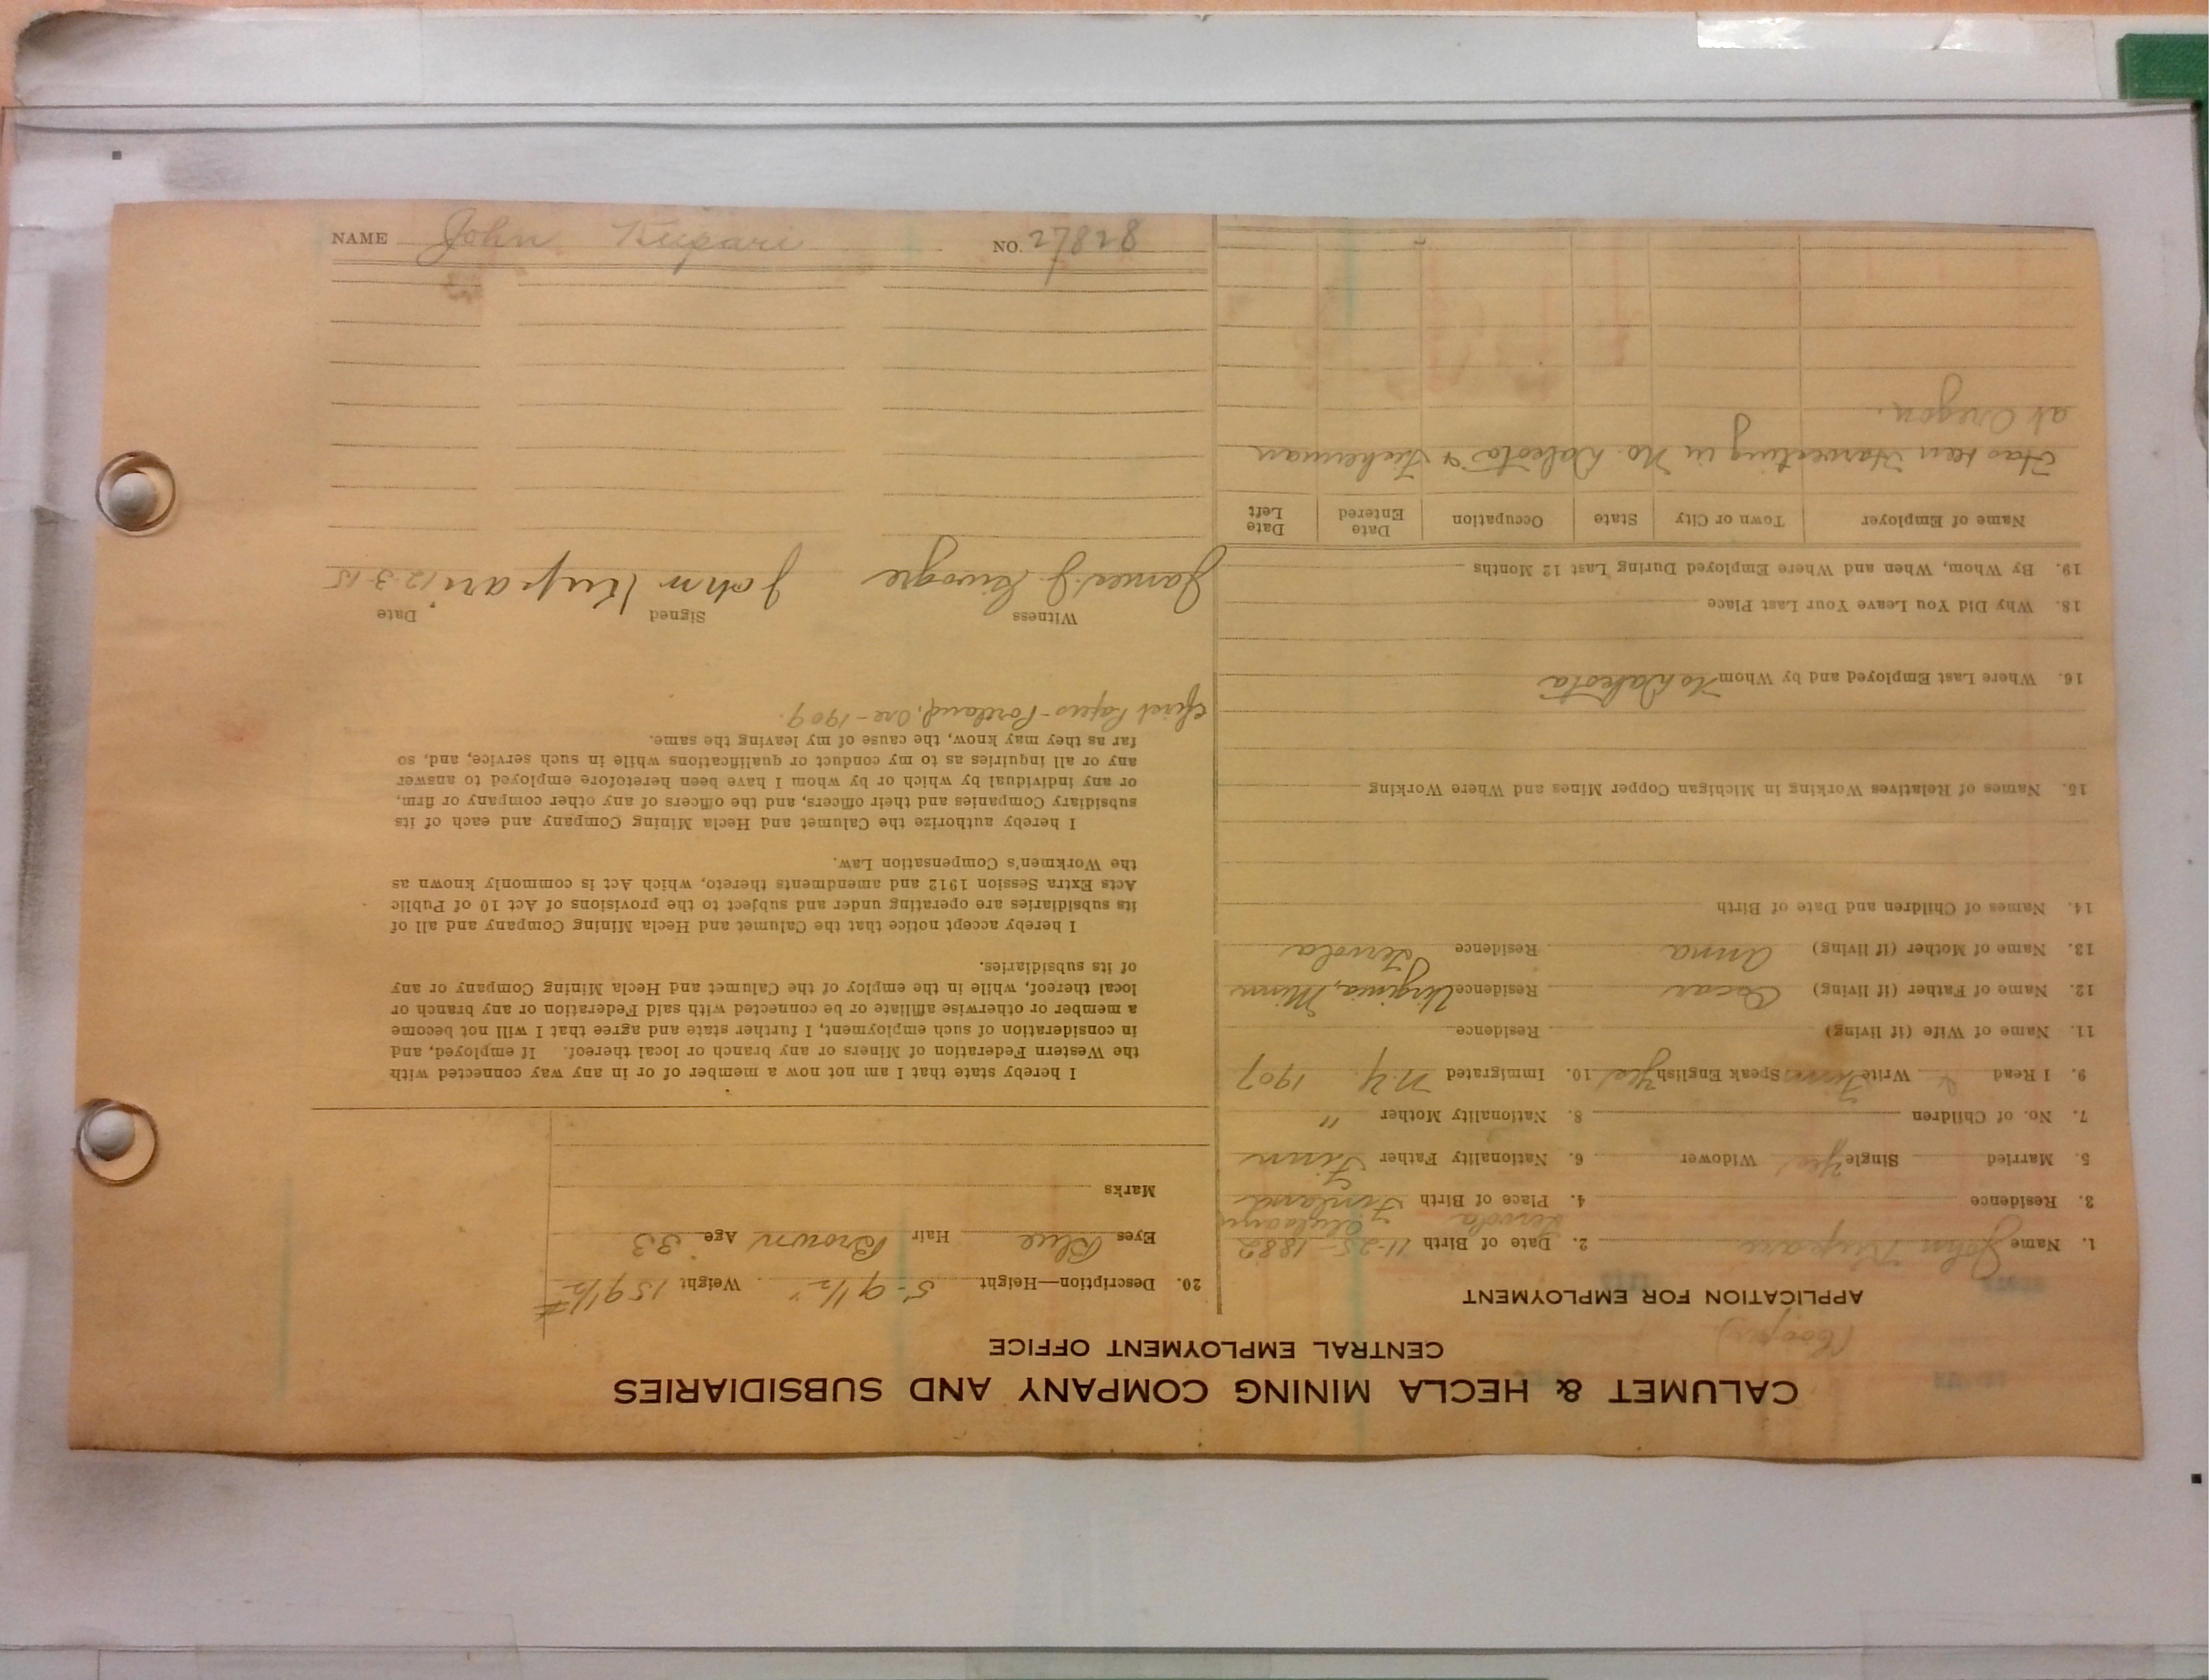 CALUMET & HECLA MINING COMPANY AND SUBSIDIARIES
CENTRAL EMPLOYMENT OFFICE
(Cooper)
APPLICATION FOR EMPLOYMENT
1. Name John Kupari 2. Date of Birth 11-25-1882
3. Residence 4. Place of Birth Finland
5. Married Single Yes Widower 6. Nationality Father Finn
7. No. of Children 8. Nationality Mother "
9. I Read Write Finn Speak English Yes 10. Immigrated N.Y. 1907
11. Name of Wife (if living) Residence
12. Name of Father (if living) Oscar Residence Virginia, Minn
13. Name of Mother (if living) Anna Residence Tervola
14. Names of Children and Date of Birth
15. Names of Relatives Working in Michigan Copper Mines and Where Working
16. Where Last Employed and by Whom No Dakota
18. Why Did You Leave Your Last Place
19. By Whom, When and Where Employed During Last 12 Months
Name of Employer Town or City State Occupation Date Entered Date Left
Has been Harvesting in No. Dakota & Fisherman
at Oregon.
20. Description—Height 5-9 1/2" Weight 159 1/2 #
Eyes Blue Hair Brown Age 33
Marks
I hereby state that I am not now a member of or in any way connected with
the Western Federation of Miners or any branch or local thereof. If employed, and
in consideration of such employment, I further state and agree that I will not become
a member or otherwise affiliate or be connected with said Federation or any branch or
local thereof, while in the employ of the Calumet and Hecla Mining Company or any
of its subsidiaries.
I hereby accept notice that the Calumet and Hecla Mining Company and all of
its subsidiaries are operating under and subject to the provisions of Act 10 of Public
Acts Extra Session 1912 and amendments thereto, which Act is commonly known as
the Workmen's Compensation Law.
I hereby authorize the Calumet and Hecla Mining Company and each of its
subsidiary Companies and their officers, and the officers of any other company or firm,
or any individual by which or by whom I have been heretofore employed to answer
any or all inquiries as to my conduct or qualifications while in such service, and, so
far as they may know, the cause of my leaving the same.
First Papers - Portland, Ore - 1909.
Witness Signed Date
James J. John Kupari 12-3-15
NAME John Kupari NO. 27828